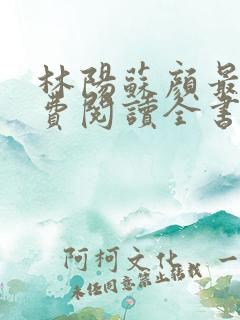 林陽蘇顏最
費閱讀全書
阿柯文化 一
未经同意禁止转载